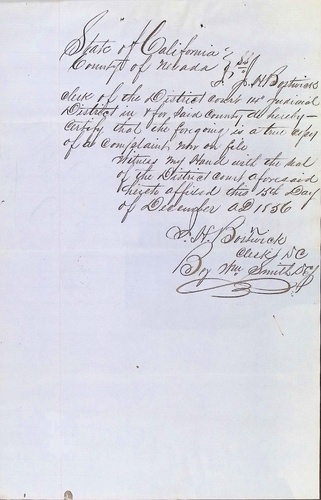 State of California
County of Nevada } SS
I J. H. Bostwick
Clerk of the District Court 14th Judicial
District in & for Said County do hereby
Certify that the foregoing is a true copy
of a Complaint now on file
Witness my Hand with the seal
of the District Court aforesaid
hereto affixed this 15th Day
of December AD 1856
J. H. Bostwick
Clerk DC
By Wm Smith